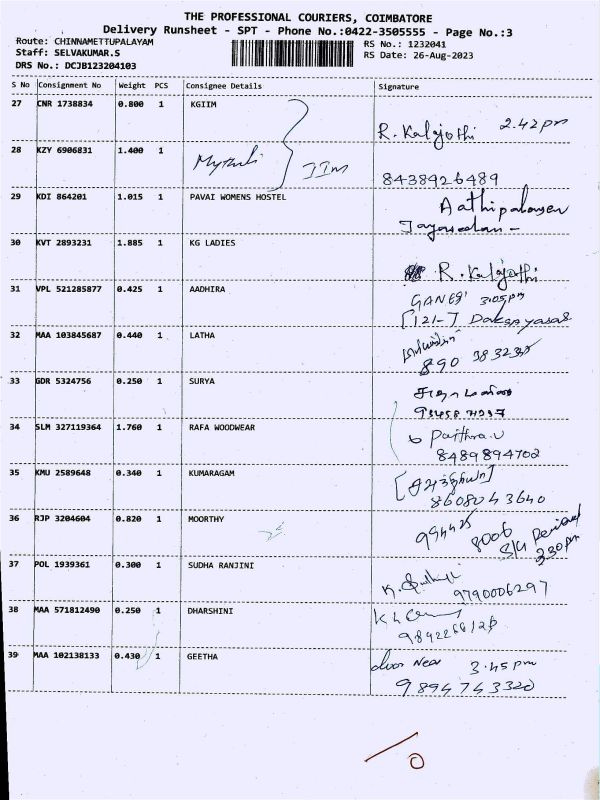 THE PROFESSIONAL COURIERS, COIMBATORE
Delivery Runsheet - SPT - Phone No.:0422-3505555 - Page No.:3
Route: CHINNAMETTUPALAYAM
RS No.: 1232041
Staff: SELVAKUMAR.S
RS Date: 26-Aug-2023
DRS No.: DCJB123204103
S No Consignment No Weight PCS Consignee Details Signature
27 CNR 1738834 0.800 1 KGIIM
R. Kalajothi 2.42 pm
28 KZY 6906831 1.400 1
Mythili IIM
8438926489
29 KDI 864201 1.015 1 PAVAI WOMENS HOSTEL
30 KVT 2893231 1.885 1 KG LADIES
R. Kalajothi
31 VPL 521285877 0.425 1 AADHIRA
GANESH 3.05 pm
32 MAA 103845687 0.440 1 LATHA
33 GDR 5324756 0.250 1 SURYA
34 SLM 327119364 1.760 1 RAFA WOODWEAR
8489894702
35 KMU 2589648 0.340 1 KUMARAGAM
8608043640
36 RJP 3204604 0.820 1 MOORTHY
8006
330 pm
37 POL 1939361 0.300 1 SUDHA RANJINI
9790006297
38 MAA 571812490 0.250 1 DHARSHINI
39 MAA 102138133 0.430 1 GEETHA
door Near 3.45 pm
9894743320